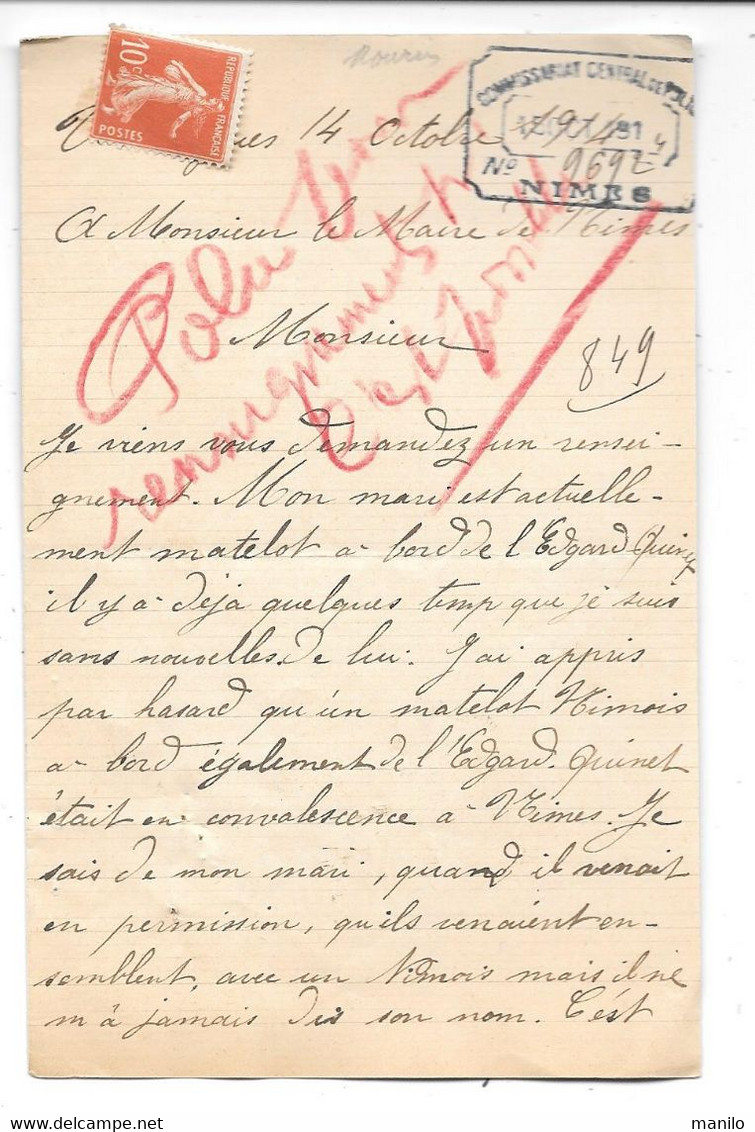 10 c.
RÉPUBLIQUE FRANÇAISE
POSTES
COMMISSARIAT CENTRAL DE POLICE
No 9692
NIMES
14 Octobre 1914
A Monsieur le Maire de Nimes
Police
renseignements
Monsieur
849
Je viens vous demandez un rensei-
gnement. Mon mari est actuelle-
ment matelot a bord de l'Edgard Quinet
il y a déja quelques temp que je suis
sans nouvelles de lui. J'ai appris
par hasard qu'un matelot Nimois
a bord également de l'Edgard. Quinet
était en convalescence a Nimes. Je
sais de mon mari, quand il venait
en permission, qu'ils venaient en-
semblent, avec un Nimois mais il ne
m'a jamais dis son nom. C'ést
manilo